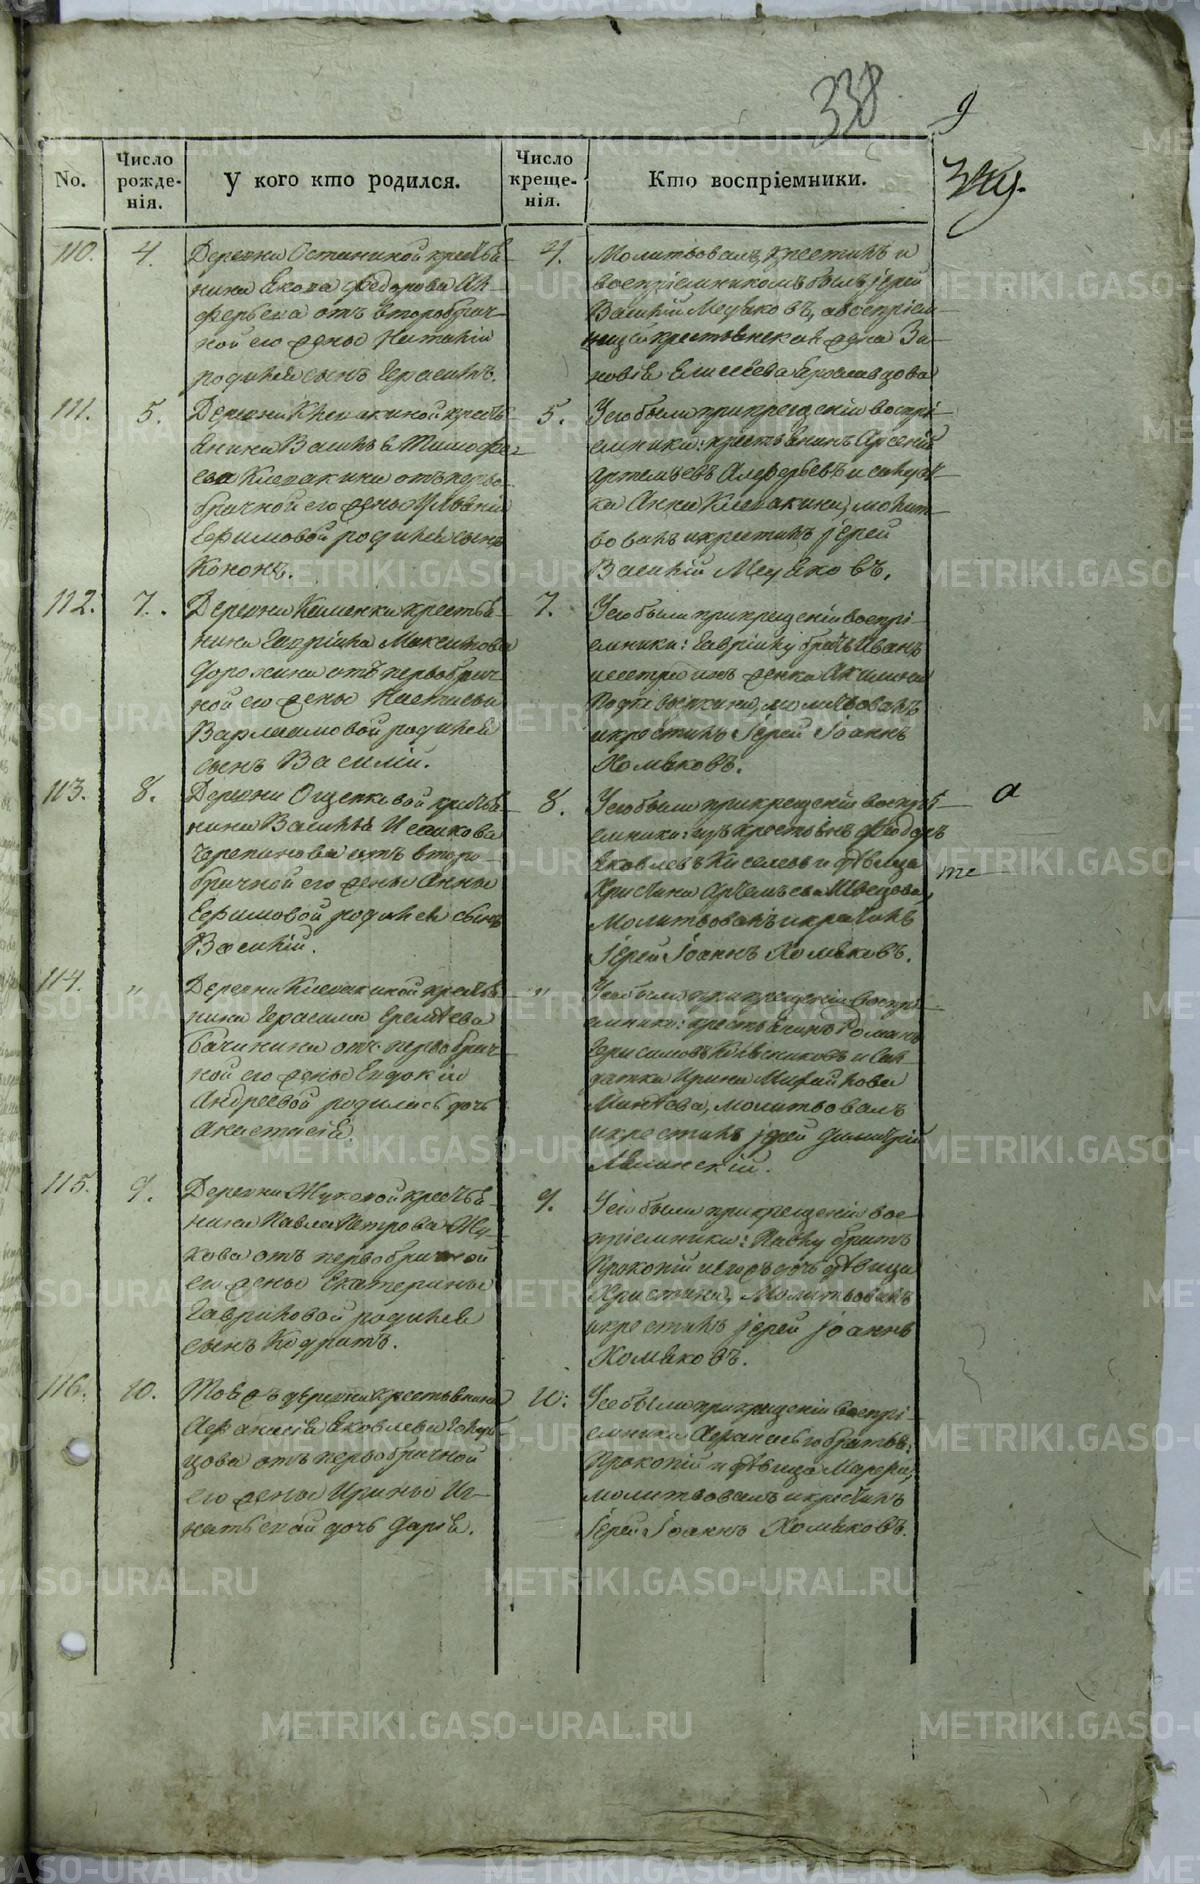 338
9
No.
Число рожде-нія.
У кого кто родился.
Число креще-нія.
Кто воспріемники.
110.
4.
Деревни Останиной крестья-
нина Якова Федорова Ал-
ферьева отъ второбрач-
ной его жены Наталіи
родился сынъ Герасимъ.
4.
Молитвовалъ, крестилъ и
воспріемникомъ былъ іерей
Василій Медяковъ, а воспріем-
ницей крестьянская жена Зи-
новія Елисеева Ерославцова
111.
5.
Деревни Клевакиной кресть-
янина Василья Тимофе-
ева Клевакина отъ перво-
брачной его жены Ульяніи
Ефимовой родился сынъ
Кононъ.
5.
У его были при крещеніи воспрі-
емники: крестьянинъ Арсеній
Артемьевъ Алферьевъ и солдат-
ка Анна Клевакина, молит-
вовалъ и крестилъ іерей
Василій Медяковъ.
112.
7.
Деревни Каменки крестья-
нина Гавріила Максимова
Дорожина отъ первобрач-
ной его жены Настасьи
Варламовой родился
сынъ Василій.
7.
У его были при крещеніи воспрі-
емники: Гавріилу братъ Иванъ
женка Акилина
молитвовалъ
и крестилъ Іерей Іоаннъ
Хомяковъ.
113.
8.
Деревни Ощепковой крестья-
нина Василья Исакова
Черепанова отъ второ-
брачной его жены Анны
Ефимовой родился сынъ
Василій.
8.
У его были при крещеніи воспрі-
емники: изъ крестьянъ Федоръ
Яковлевъ Киселевъ и дѣвица
Христина Артемьева Швецова,
Молитвовалъ и крестилъ
Іерей Іоаннъ Хомяковъ.
а
те
114.
"
Деревни Клевакиной крестья-
нина Герасима Еремѣева
Бачинина отъ первобрач-
ной его жены Евдокіи
Андреевой родилась дочь
Анастасія.
"
У ее были при крещеніи воспрі-
емники: крестьянинъ Романъ
Герасимовъ и сол-
датка Ирина Михайлова
Минѣева, молитвовалъ
и крестилъ іерей Димитрій
Лялинскій.
115.
9.
Деревни Жуковой крестья-
нина Павла Петрова Жу-
кова отъ первобрачной
его жены Екатерины
Гавриловой родился
сынъ Кодратъ.
9.
У его были при крещеніи вос-
пріемники: Павлу братъ
Прокопій и его дочь дѣвица
Христина, Молитвовалъ
и крестилъ іерей Іоаннъ
Хомяковъ.
116.
10.
Той жъ деревни крестьянина
Афанасія Яковлева
отъ первобрачной
его жены Ирины Иг-
натьевой дочь Дарія.
10:
У ее были при крещеніи воспрі-
емники Афанасью братья:
Прокопій и дѣвица
молитвовалъ и крестилъ
Іерей Іоаннъ Хомяковъ.
METRIKI.GASO-URAL.RU